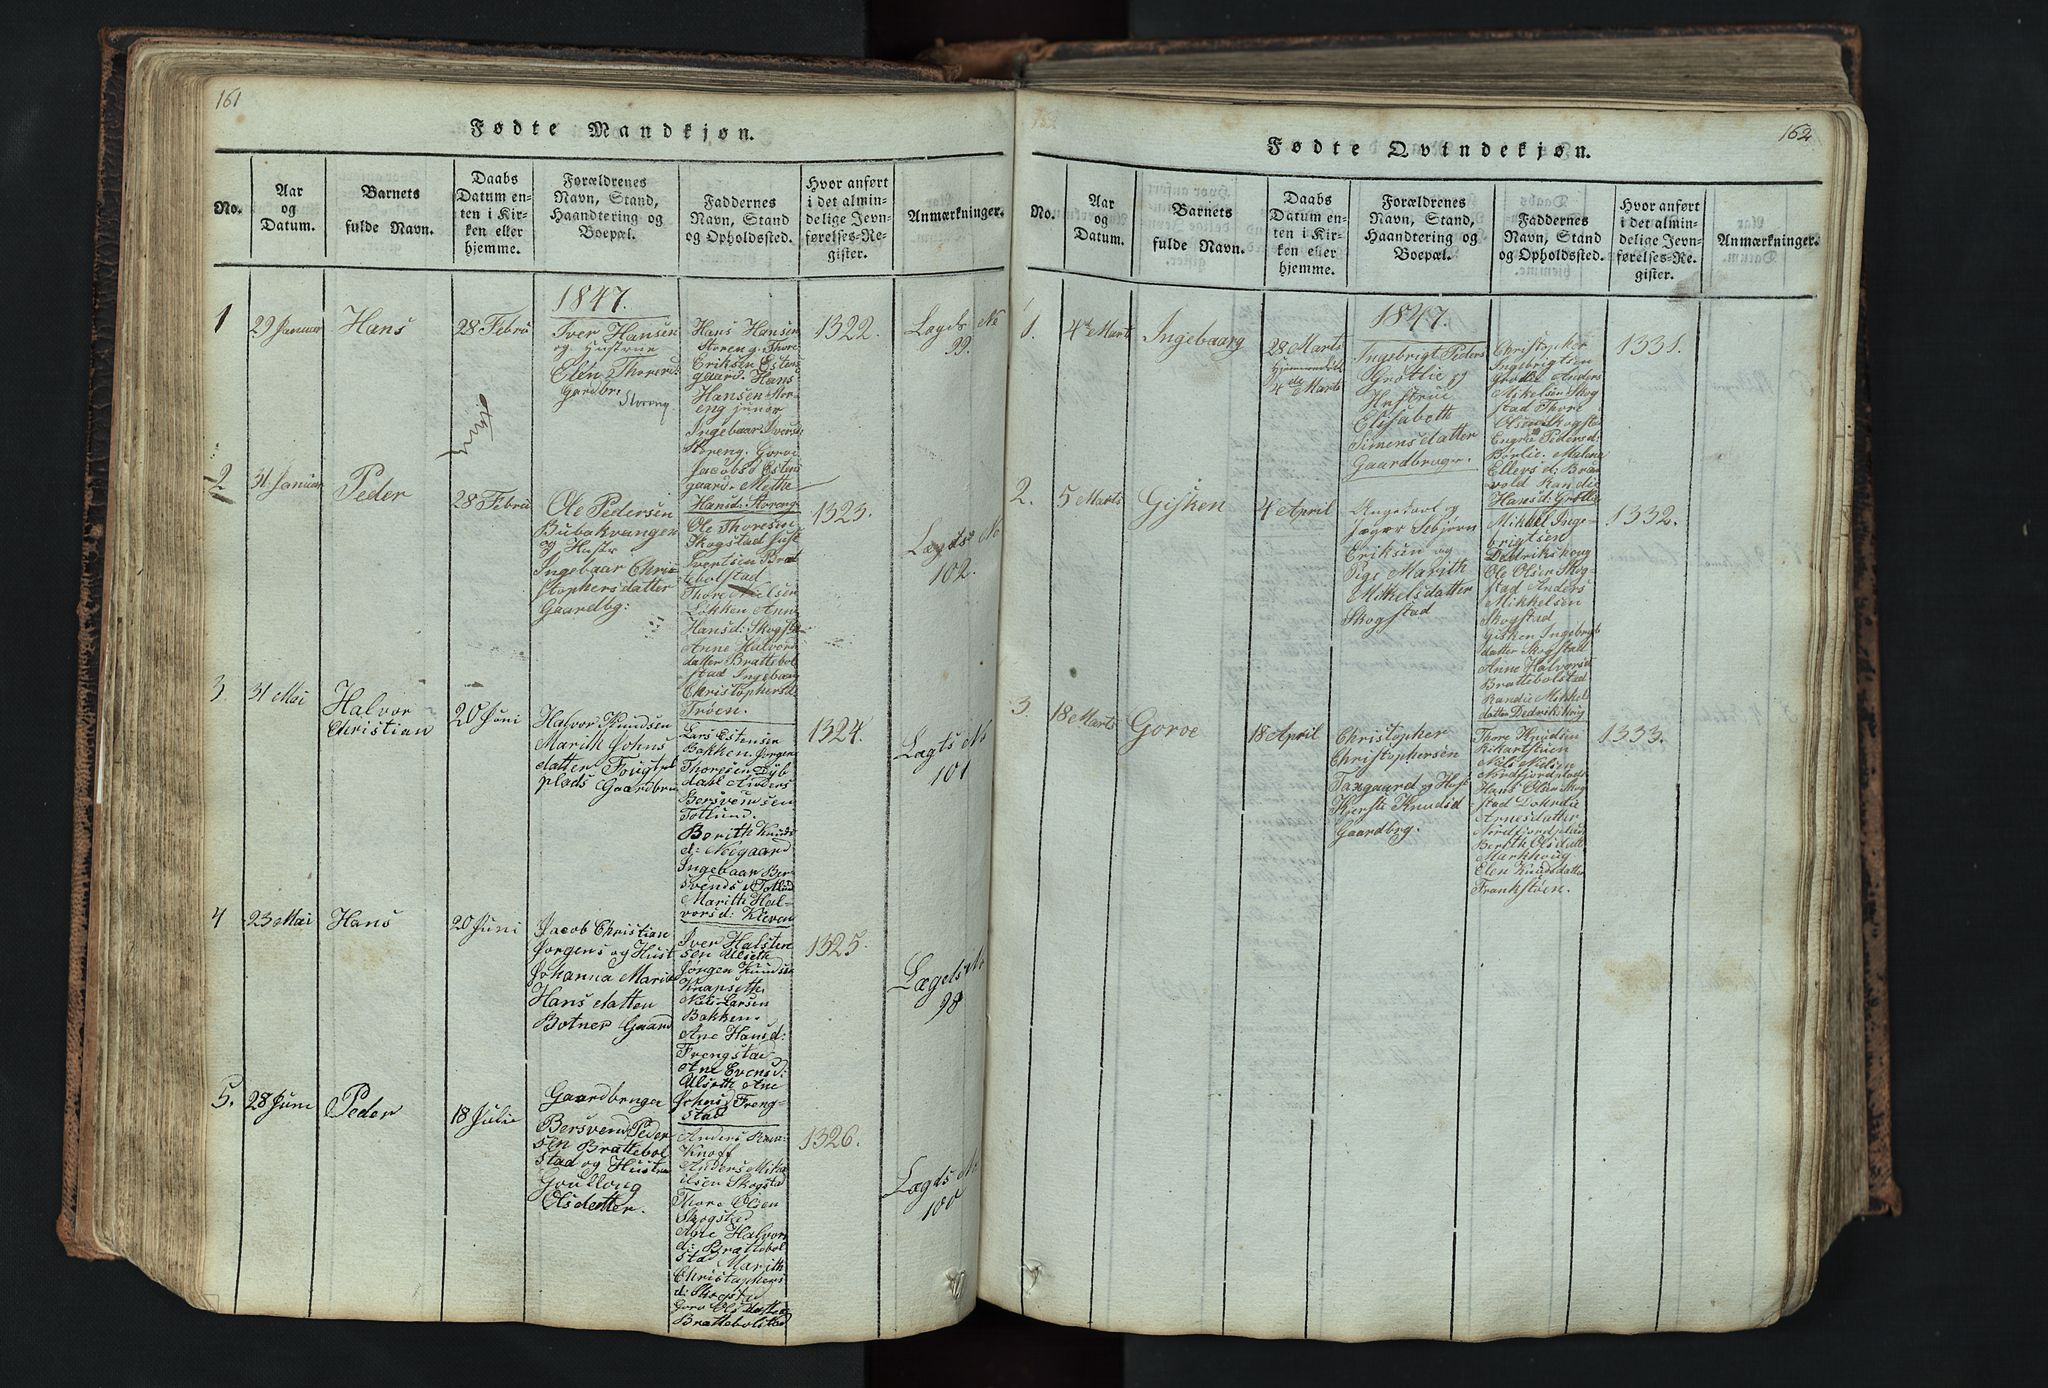 161
Fødte Mandkjøn.
No.
Aar
og
Datum.
Barnets
fulde Navn.
Daabs
Datum en-
ten i Kir-
ken eller
hjemme.
Forældrenes
Navn, Stand,
Haandtering og
Boepæl.
Faddernes
Navn, Stand
og Opholdssted.
Hvor anført
i det almin-
delige Jevn-
førelses-Re-
gister.
Anmærkninger.
1847.
1
29 Januar
Hans
28 Febru
Iver Hansen
og Hustrue
Elen Thoresd:
Gardbr.
Storeng.
Hans Hansen
Storeng. Thore
Eriksen Estens
gaard. Hans
Hansen Stor-
eng junor
Ingebaar Iversd:
Storeng. Goroe
Jacobsd Estens
gaard. Methe
Hansd: Storeng
1322.
Lægds No
99.
2
31 Januar
Peder
28 Febru
Ole Pedersen
Bubakvangen
og Hustr
Ingebaar Chri-
stophersdatter
Gaardbg:
Ole Thoresen
Skogstad
Ivertsen Brat
tebolstad
Thore Nielsen
Løkken Anne
Hansd: Skogsta
Anne Halvors
datter Brattebol
stad Ingebaar
Christophersd
Trøen.
1323.
Lægds No
102.
3
31 Mai
Halvor
Christian
20 Juni
Halvor Knudsen
Marith Johns
datter
plads Gaardbru
Lars Estensen
Bakken. Jørgen
Thoresen Dyb
dahl Anders
Bersvendsen
Totlund.
Berith Knuds
d: Neegaard
Ingebaar Ber
svends d Totlund
Marith Hal-
vorsd: Kleven
1324.
Lægts No
101
4
23 Mai
Hans
20 Juni
Jacob Christian
Jørgens og Hust
Johanna Maria
Hans datter
Botner Gaard
Iver Halsten
sen Ulseth
Jørgen Knudsen
Knapsette.
Nils Larsen
Bakken.
Ane Hansd:
Frengstad
Ane Evensd:
Ulseth Ane
Johnsd Freng-
stad
1325.
Lægds No
98
5.
28 Juni
Peder
18 Julie
Gaardbruger
Bersvend Peder
sen Brattebol
stad og Hustru
Gouldoug
Olsdatter.
Anders
Knoff
Anders Mik
elsen Skogstad
Thore Olsen
Skogstad
Ane Halvors
d: Brattebol
stad Marith
Christophers
d: Skogstad
Goro Olsdatter
Brattebolstad
1326.
Lægds No
100
162
Fødte Qvindekjøn.
No.
Aar
og
Datum.
Barnets
fulde Navn.
Daabs
Datum en-
ten i Kir-
ken eller
hjemme.
Forældrenes
Navn, Stand,
Haandtering og
Boepæl.
Faddernes
Navn, Stand
og Opholdssted.
Hvor anført
i det almin-
delige Jevn-
førelses-Re-
gister.
Anmærkninger.
1847.
1.
4de Marts
Ingebaarg
28 Marts
Hjemmedøbt
4de Marts
Ingebrigt Peders
Grøtlie og
Hustrue
Elisabeth
Simensdatter
Gaardbruger.
Christopher
Ingebrigtsen
Grøtlie Anders
Mikelsen Skog
stad Thore
Olsen Skogsta
Engre Pedersd:
Børlie. Malena
Ellersd: Bræ
vold Randie
Hansd: Grøtlie
1331.
2.
5 Marts
Gisken
4 April
Ungekarl og
Jæger Sebjørn
Eriksen og
Pige Marith
Mikkelsdatter
Skogstad
Mikkel Inge-
brigtsen
Dedrikshoug
Ole Olsen Skog-
stad Anders
Mikkelsen
Skogstad
Gisken Ingebrigts
datter Skogstad
Anne Halvorsd
Brattebolstad
Randie Mikkels
datter Dedrikshoug
1332.
3.
18 Marts
Goroe
18 April
Christopher
Christophersen
Taxgaard og Hust
Kersti Knudsd
Gaardbrg.
Thore Knudsen
Kikartstuen
Nils Nilsen
Nordfjordplads
Hans Olsen Skog
stad Dohrdie
Arnesdatter
Nordfjordplads
Berith Olsdatte
Markhoug
Elen Knudsdatter
Frankstøen.
1333.